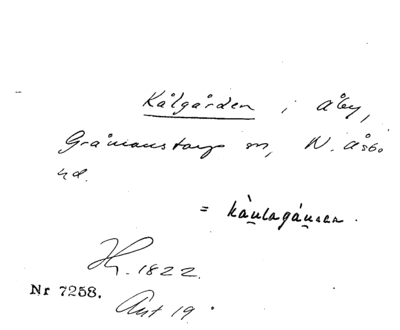 Kålgården i Åby,
Gråmanstorps sn, N. Åsbo
hd.
= kå̀ulagáuren.
H. 1822.
Nr 7258.
Ant 19